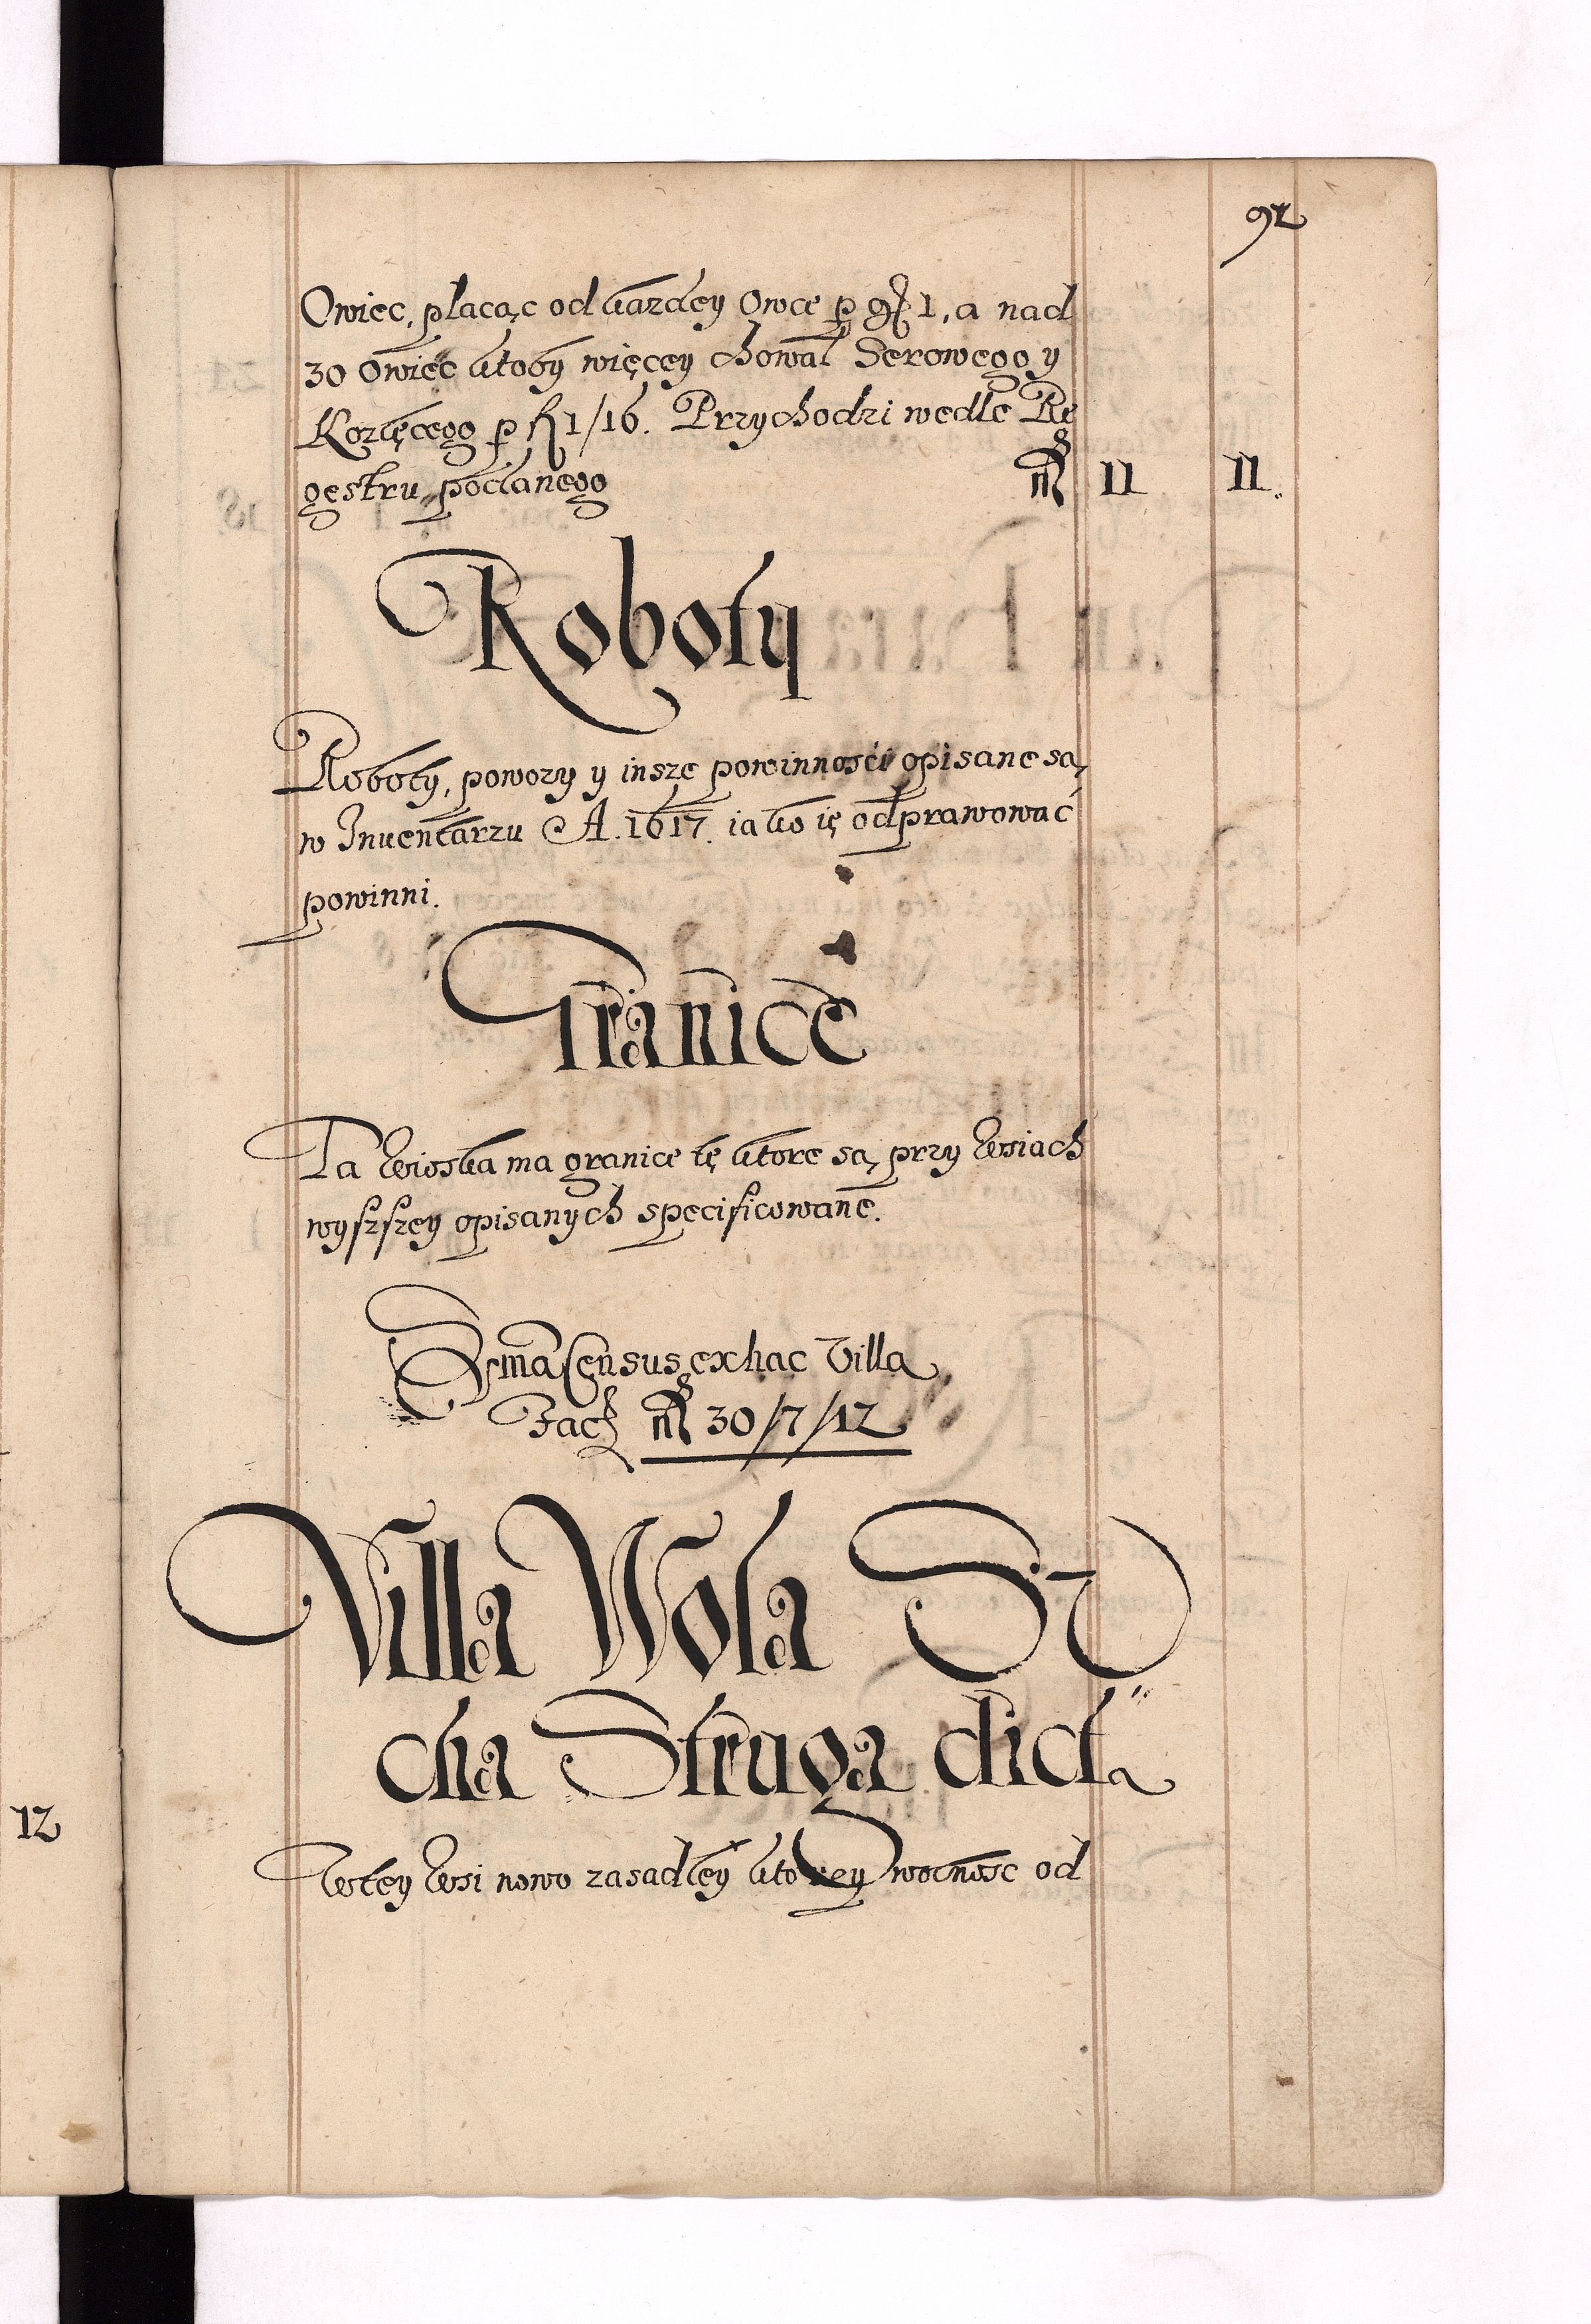 92
Owiec, płacąc od każdey Owce p gr 1, a nad
30 Owiec ktoby więcey chował Serowego y
Koźlęcego p fl 1/16. Przychodzi wedle Re
gestru podanego mrc 11 11.
Roboty
Roboty, powozy y insze powinności opisane są,
w Inuentarzu A. 1617. iako ię odprawować
powinni.
Granice
Ta Wioska ma granice tę ktore są, przy Wsiach
wyszszey opisanych specificowane.
Sma Census ex hac Villa
Fac mrc 30/7/12
Villa Wola SU
cha Struga dict
W tey Wsi nowo zasadłey ktorey wolnosc od
12